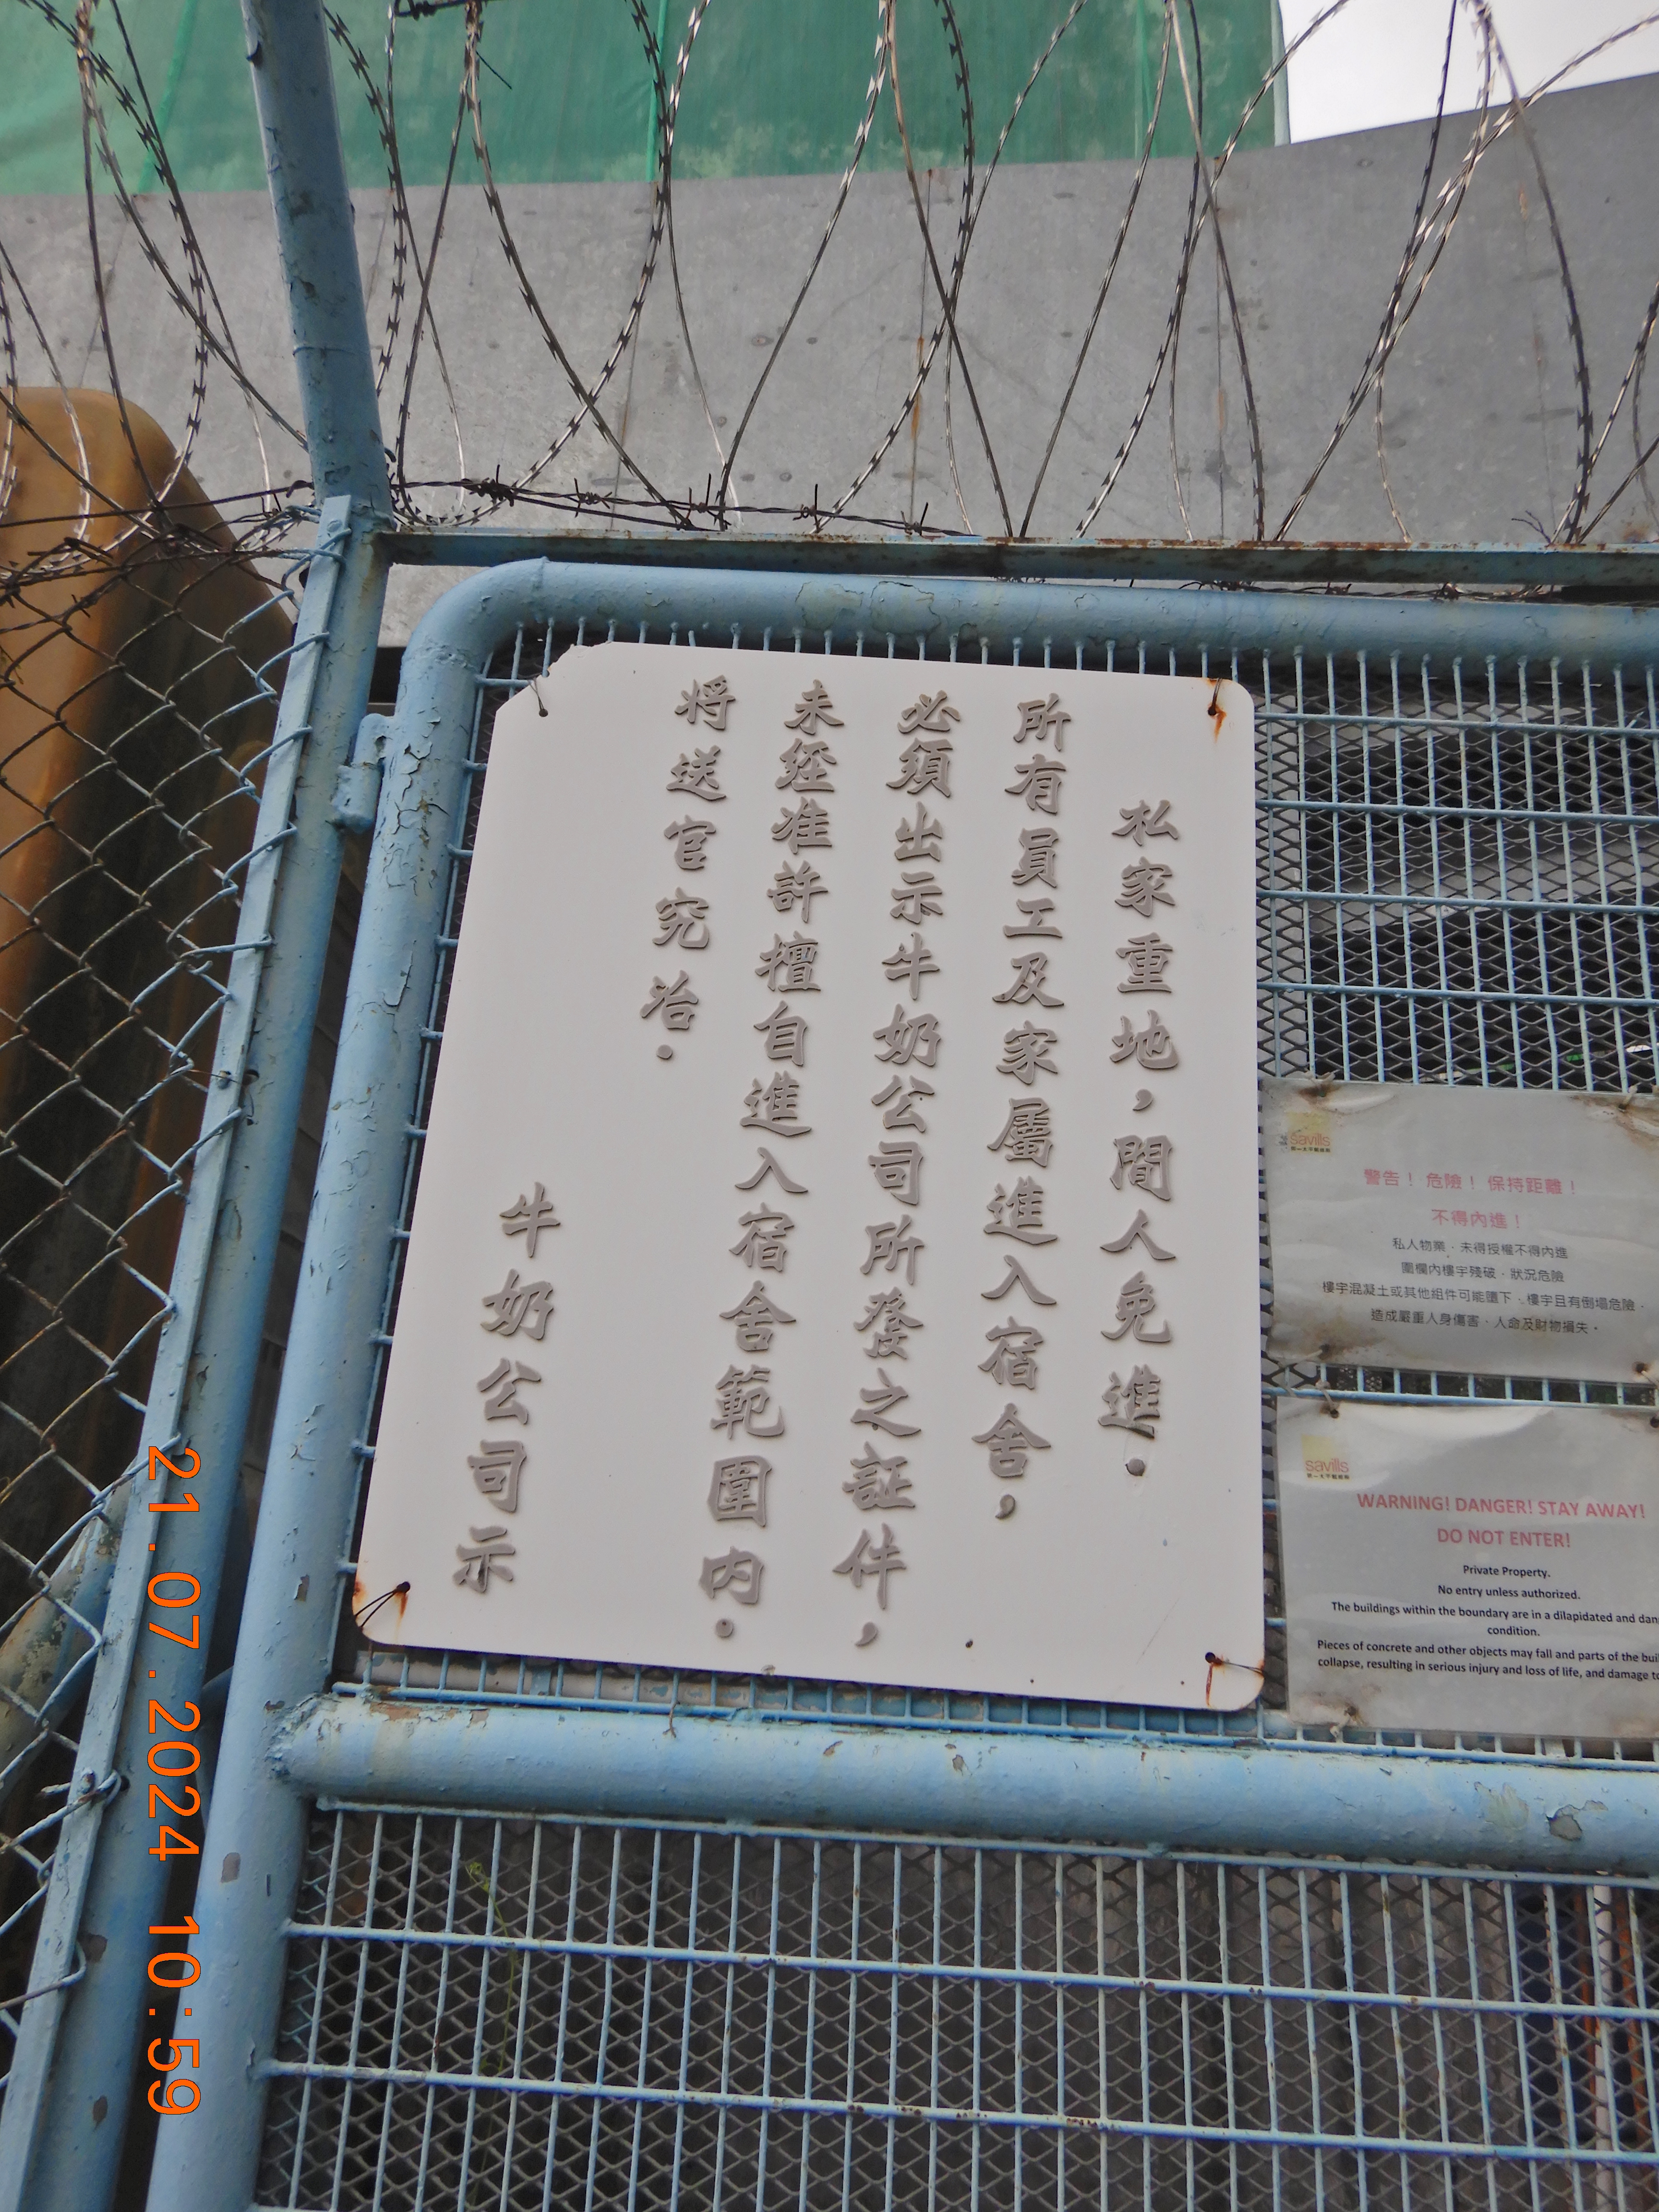 私家重地，閒人免進．
所有員工及家屬進入宿舍，
必須出示牛奶公司所發之証件，
未經准許擅自進入宿舍範圍內．
將送官究治．
牛奶公司示
savills
第一太平戴維斯
警告！ 危險！ 保持距離！
不得內進！
私人物業．未得授權不得內進
圍欄內樓宇殘破．狀況危險
樓宇混凝土或其他組件可能墮下．樓宇且有倒塌危險．
造成嚴重人身傷害．人命及財物損失。
savills
第一太平戴維斯
WARNING! DANGER! STAY AWAY!
DO NOT ENTER!
Private Property.
No entry unless authorized.
The buildings within the boundary are in a dilapidated and dan
condition.
Pieces of concrete and other objects may fall and parts of the bui
collapse, resulting in serious injury and loss of life, and damage to
21.07.2024 10:59